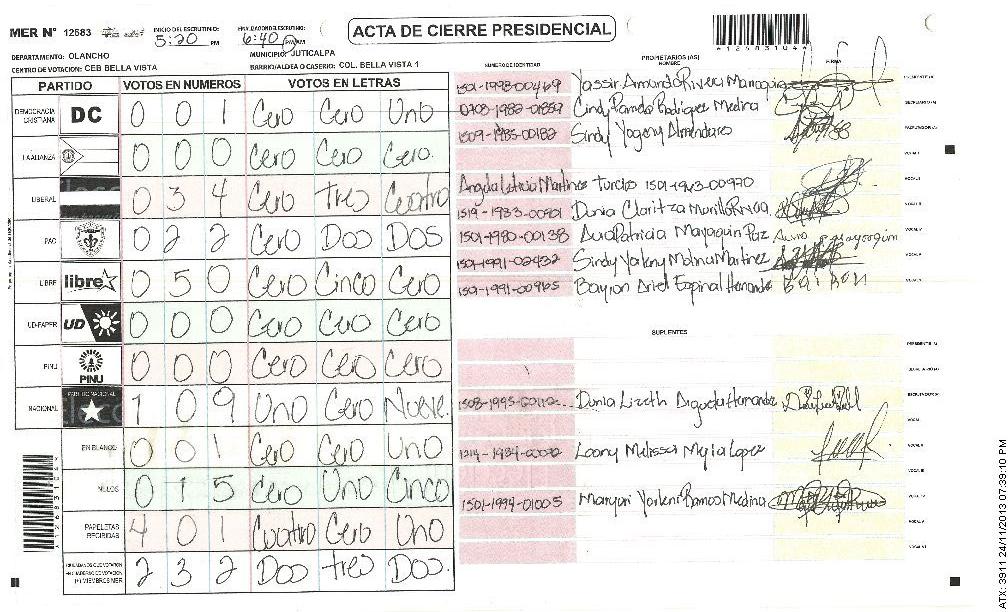 MER N° 12583
INICIO DEL ESCRUTINIO: 5:20 PM
FINALIZACION DEL ESCRUTINIO: 6:40 PM
ACTA DE CIERRE PRESIDENCIAL
DEPARTAMENTO: OLANCHO
MUNICIPIO: JUTICALPA
CENTRO DE VOTACION: CEB BELLA VISTA
BARRIO/ALDEA O CASERIO: COL. BELLA VISTA 1
PARTIDO VOTOS EN NUMEROS VOTOS EN LETRAS
DEMOCRACIA CRISTIANA DC 0 0 1 Cero Cero Uno
LA ALIANZA 0 0 0 Cero Cero Cero.
LIBERAL 0 3 4 Cero Tres Cuatro
PAC 0 2 2 Cero Dos DOS
LIBRE libre 0 5 0 Cero Cinco Cero
UD-FAPER UD 0 0 0 Cero Cero Cero
PINU PINU 0 0 0 Cero Cero Cero
NACIONAL PARTIDO NACIONAL 1 0 9 Uno Cero Nueve.
EN BLANCO 0 0 1 Cero Cero Uno
NULOS 0 1 5 Cero Uno Cinco
PAPELETAS RECIBIDAS 4 0 1 Cuatro Cero Uno
CIUDADANOS QUE VOTARON EN CUADERNO DE VOTACION (+) MIEMBROS MER 2 3 2 Dos tres Dos.
PROPIETARIOS (AS)
NUMERO DE IDENTIDAD NOMBRE FIRMA
1501-1993-00469 Yassir Armando Rivera PRESIDENTE (A)
0708-1982-01859 Cindy Pamela Rodriguez Medina SECRETARIO (A)
1509-1985-00182 Sindy Yogeny Almendares ESCRUTADOR (A)
VOCAL I
Angela Leticia Martinez Turcios 1501-1943-00970 VOCAL II
1519-1933-00201 Dunia Claritza Murillo Rivera. VOCAL III
1501-1980-00138 Aura Patricia Mayorquin Paz VOCAL IV
1501-1991-02432 Sindy Yorleny Molina Martinez VOCAL V
1501-1991-00965 Bayron Ariel Espinal Hernandez VOCAL VI
SUPLENTES
PRESIDENTE (A)
SECRETARIO (A)
Dunia Lizeth Digueda Hernandez ESCRUTADOR (A)
VOCAL I
Loany Melissa Mejia Lopez VOCAL II
VOCAL III
1501-1994-01005 Maryori Yorleni Ramos Medina VOCAL IV
VOCAL V
VOCAL VI
ATX: 3911 24/11/2013 07:39:10 PM